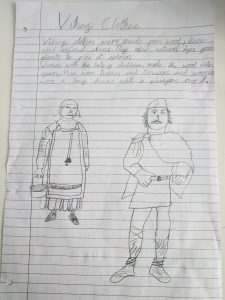 Viking Clothes
Viking clothes were made from wool, linen
and animal skins. They used natural dyes from
plants to give it colour.
Women, with the help of children, made the wool into
yarn. Men wore tunics and trousers and women
wore a long dress with a pinafore over it.